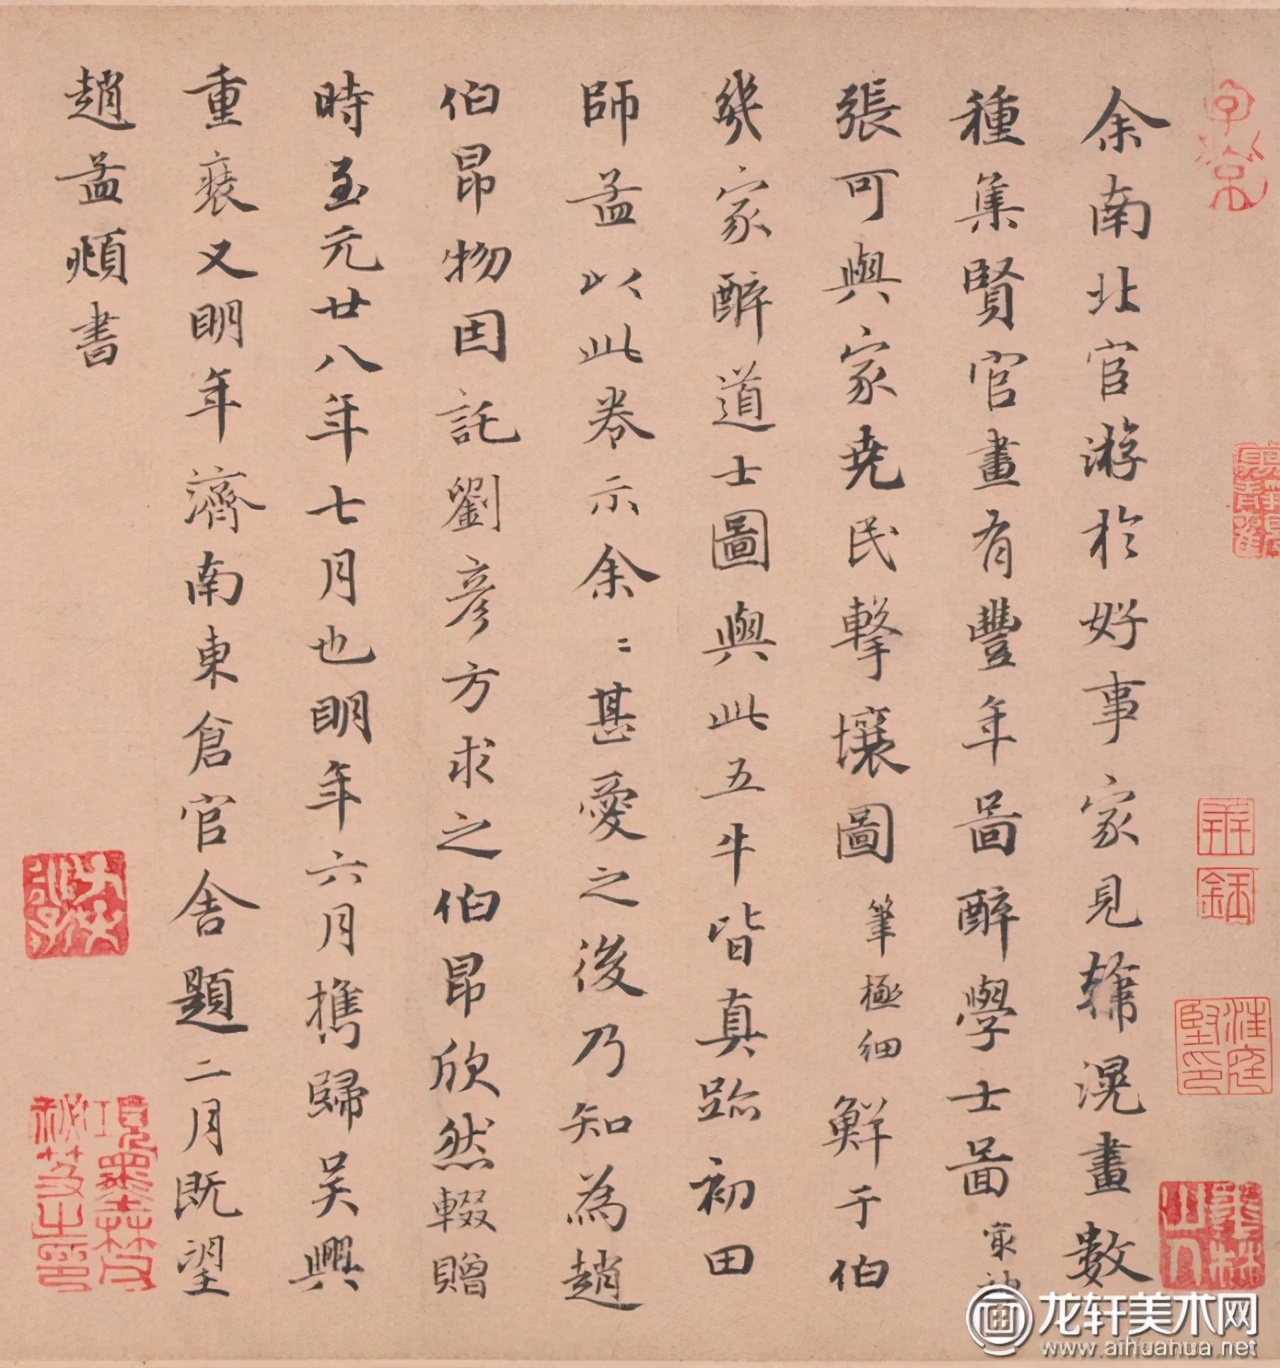 余南北官游於好事家見韓滉畫數
種集賢官畫有豐年圖醉學士圖最神
張可與家堯民擊壤圖筆極細鮮于伯
幾家醉道士圖與此五牛皆真跡初田
師孟以此卷示余〻甚愛之後乃知為趙
伯昂物因託劉彥方求之伯昂欣然輟贈
時至元廿八年七月也明年六月攜歸吳興
重裝又明年濟南東倉官舍題二月既望
趙孟頫書
項墨林父
祕笈之印
龙轩美术网
www.aihuahua.net